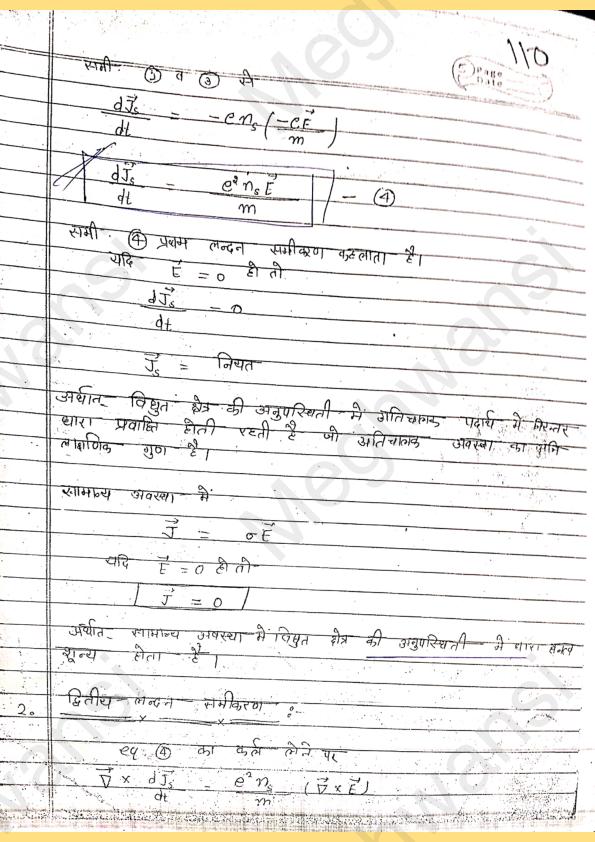 110
Page
Date
समी. ① व ③ से
dJ⃗s/dt = -e ns (-eE⃗/m)
dJ⃗s/dt = e² ns E⃗/m - ④
समी. ④ प्रथम लन्दन समीकरण कहलाता है।
यदि E⃗ = 0 हो तो
dJ⃗s/dt = 0
J⃗s = नियत
अर्थात- विधुत क्षेत्र की अनुपस्थिती में अतिचालक पदार्थ में निरन्तर
धारा प्रवाहित होती रहती है जो अतिचालक अवस्था का
लाक्षणिक गुण है।
सामान्य अवस्था में
J⃗ = σE⃗
यदि E⃗ = 0 हो तो
J⃗ = 0
अर्थात- सामान्य अवस्था में विधुत क्षेत्र की अनुपस्थिती में धारा घनत्व
शून्य होता है।
2. द्वितीय लन्दन समीकरण :-
eq ④ का कर्ल लेने पर
∇⃗ × dJ⃗s/dt = e² ns/m (∇⃗ × E⃗)
Meghwansi